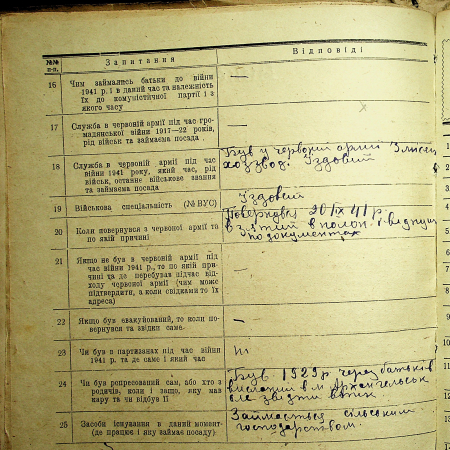 №№ п-п.
Запитання
Відповіді
16
Чим займались батьки до війни
1941 р. і в даний час та належність
їх до комуністичної партії і з
якого часу
—
17
Служба в червоній армії під час гро-
мадянської війни 1917—22 років,
рід військ та займаєма посада
—
18
Служба в червоній армії під час
війни 1941 року, який час, рід
військ, останнє військове звання
та займаєма посада
Був у червоній армії 3 місяці
хозвзвод. Їздовий
19
Військова спеціальність (№ ВУС)
Їздовий
20
Коли повернувся з червоної армії та
по якій причині
Повернувся 20/IX 41 р.
взятий в полон і відпущ
по документах
21
Якщо не був в червоній армії під
час війни 1941 р., то по якій при-
чині та де перебував підчас від-
ходу червоної армії (чим може
підтвердити, а коли свідками то їх
адреса)
—
22
Якщо був евакуйований, то коли по-
вернувся та звідки саме
—
23
Чи був в партизанах під час війни
1941 р. та де саме і який час
Ні
24
Чи був репресований сам, або хто з
родичів, коли і защо, яку мав
кару та чи відбув її
Був 1929 р. через батьків
висланий в м. Архангельськ
але звідти втік
25
Засоби існування в даний момент
(де працює і яку займає посаду)
Займається сільським
господарством.